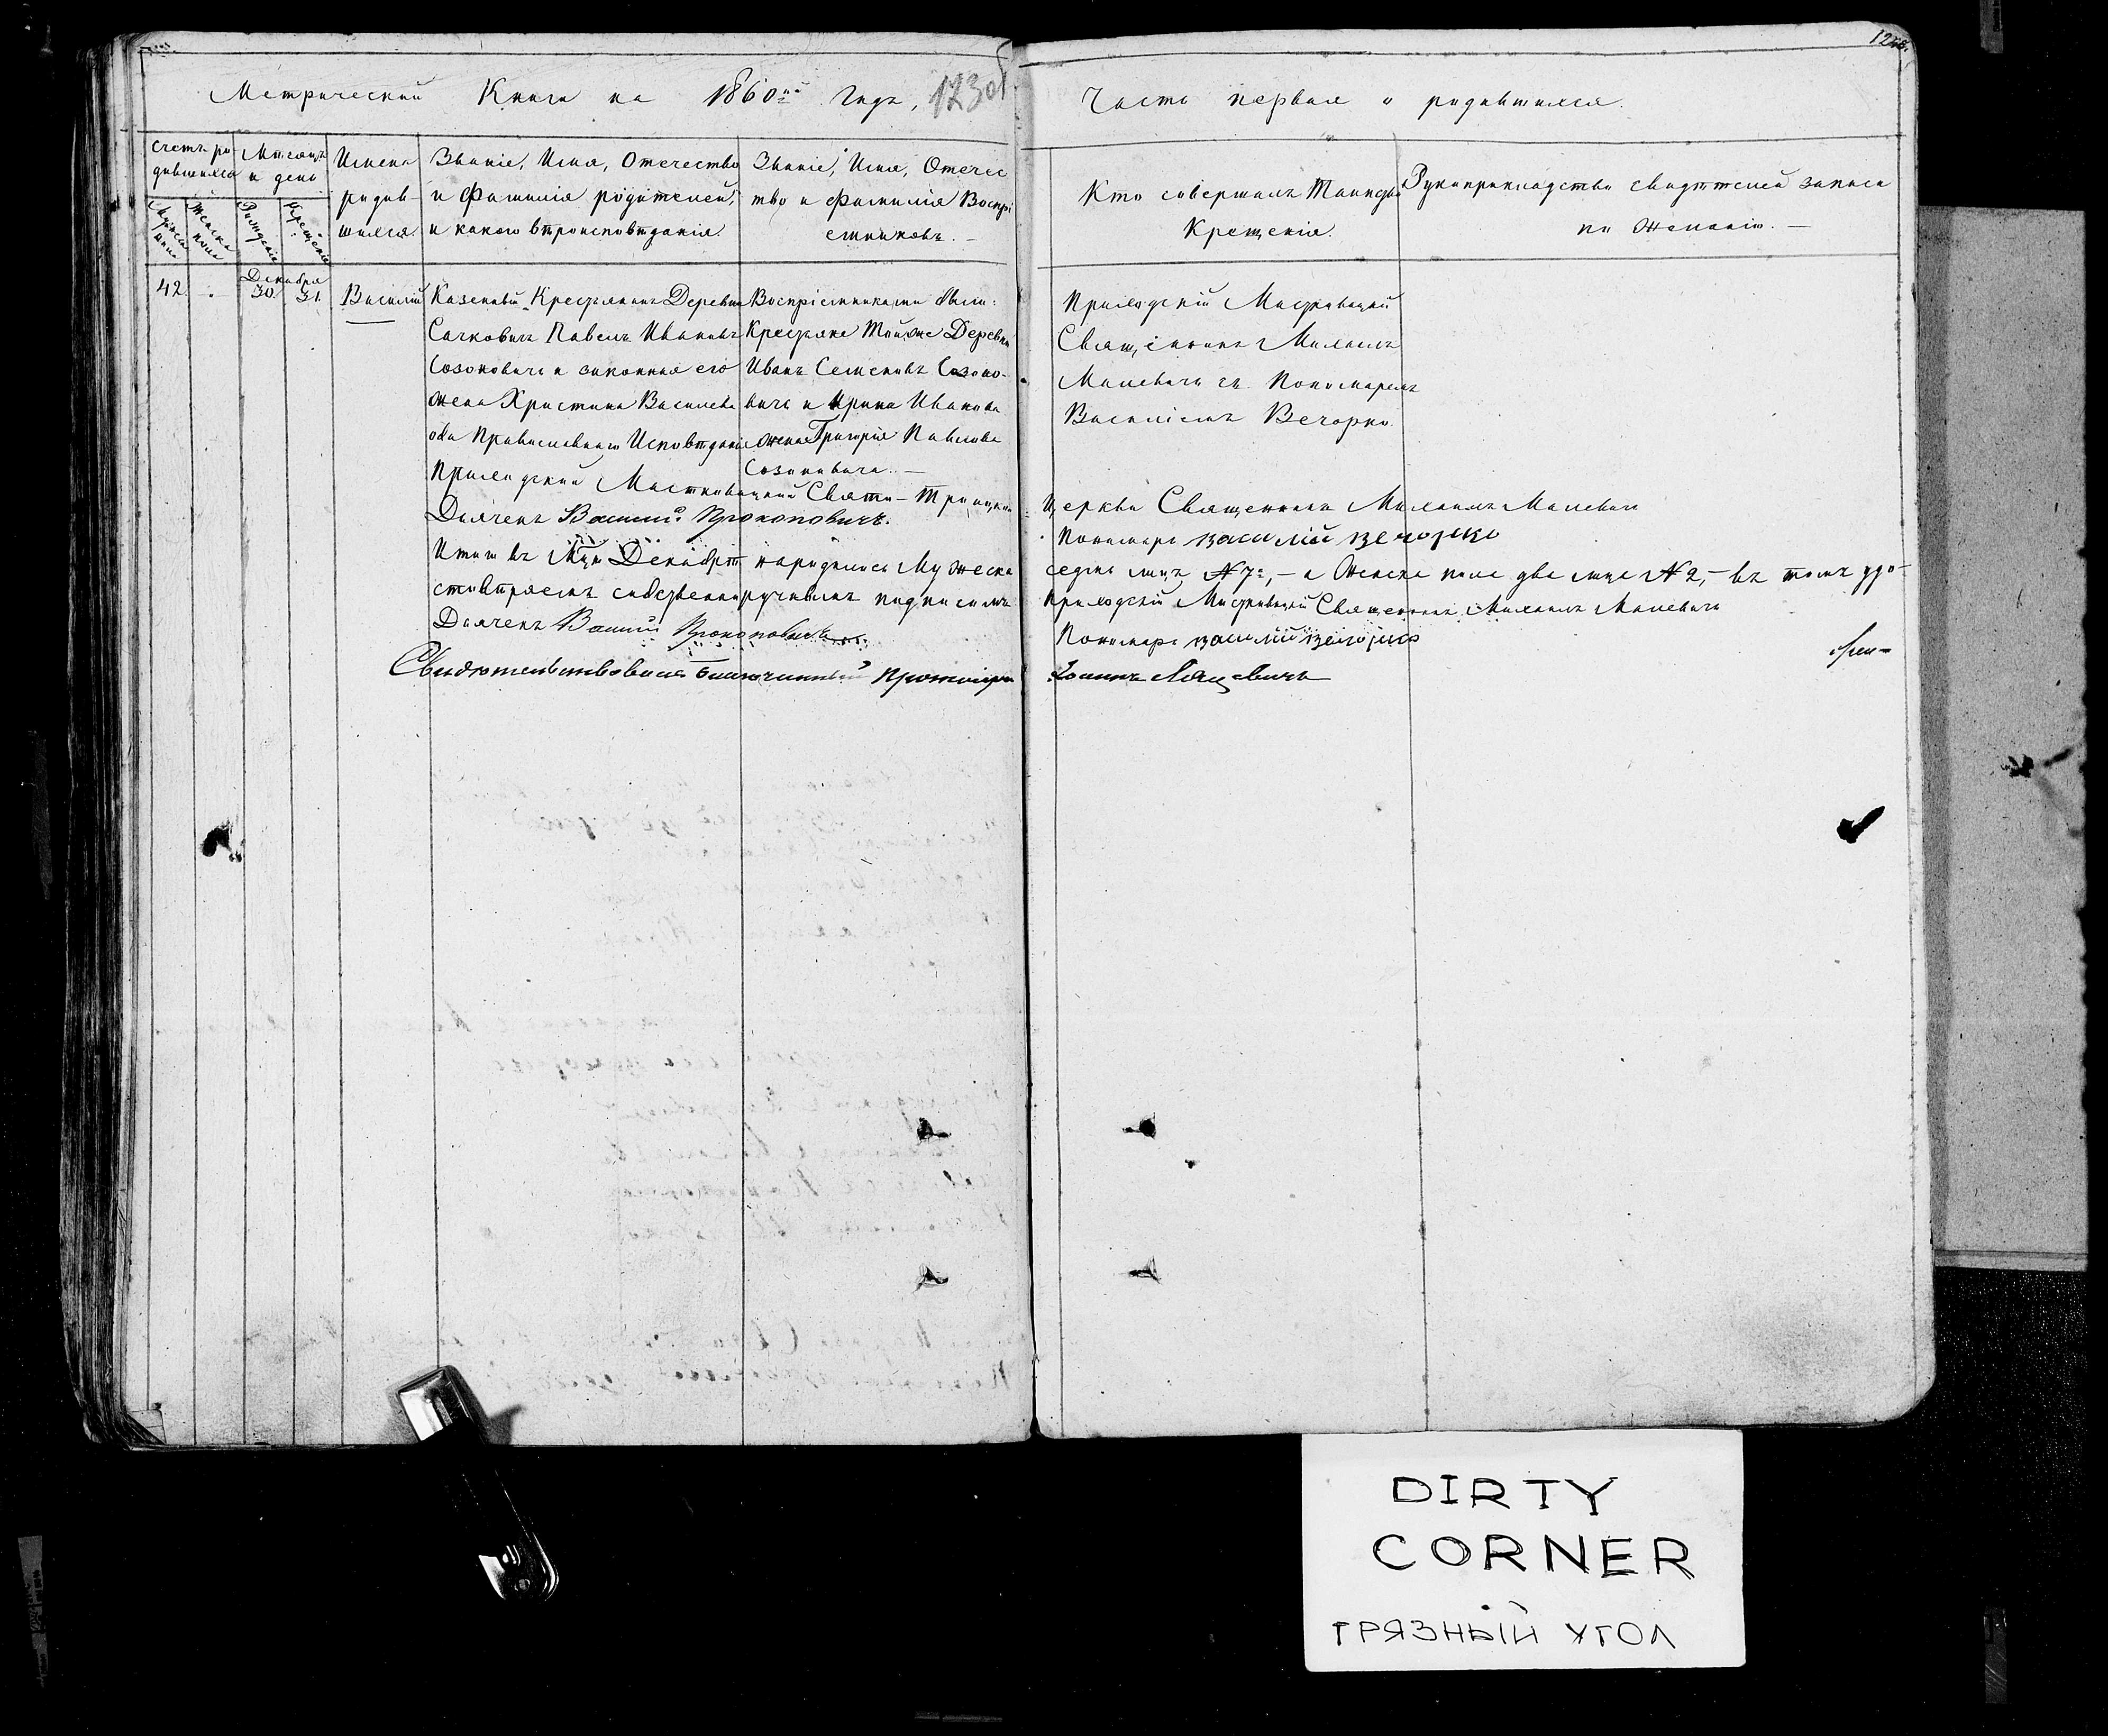 Метрической Книги на 1860й Годъ, 123об
Часть первая о родившихся.
Счетъ ро-
дившихся
Мѣсяцъ
и день
Имена
родив-
шихся.
Званіе, Имя, Отечество
и Фамилія родителей,
и какого вѣроисповѣданія.
Званіе, Имя, Отечес
тво и Фамилія Воспрі
емниковъ. —
Мужска
Женска
пола
Рожденія
Крещенія
Кто совершалъ Таинство
Крещенія.
Рукоприкладство свидѣтелей записи
по желанію. —
Декабря
42. 30. 31. Василій
Казенный Крестьянинъ Деревни
Сачковичъ Павелъ Ивановъ
Созоновичъ и законная его
жена Христина Васильева
оба Православнаго Исповѣданія
Воспріемниками были:
Крестьяне Тойже Деревни
Иванъ Семеновъ Созоно-
вичъ и Ирина Иванова
жена Григорія Павлова
Созоновича. —
Приходскій
Священникъ Михаилъ
Малевичъ съ Пономаремъ
Василіемъ Вечорко.
Приходской Свято-Троицкой Церкви Священникъ Михаилъ Малевичъ
Дьячекъ Василій Прокоповичъ. Пономарь Василій Вечорко
Итого въ Мцѣ Декабрѣ народилось Мужеска седмь лицъ, № 7, — а Женска пола два лица № 2, — въ томъ удо-
стовѣряемъ собственноручнымъ подписомъ Приходскій Священникъ Михаилъ Малевичъ
Дьячекъ Василій Прокоповичъ Пономарь Василій Вечорко
Свидѣтельствовалъ Благочинный Протоіерей Іоаннъ
DIRTY
CORNER
ГРЯЗНЫЙ УГОЛ